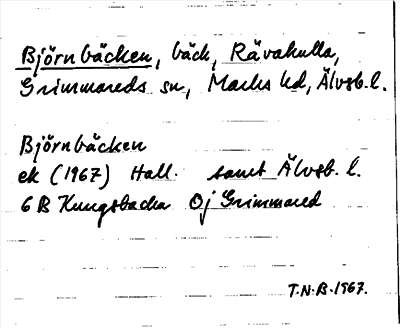 Björnbäcken, bäck, Rävakulla,
Grimmareds sn, Marks hd, Älvsb. l.
Björnbäcken
ek (1967) Hall. samt Älvsb. l.
6 B Kungsbacka Oj Grimmared
T.N.B. 1967.